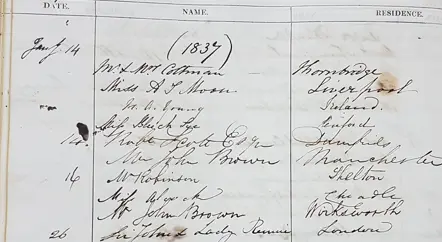 DATE. NAME. RESIDENCE.
Jany 14 (1837)
Mr & Mrs Cottman Thornbridge
Miss A S Moore Liverpool
Ireland.
Miss
Robt Scott Esqr Dumfries
Mr John Brown Manchester
16 Mr Robinson Shelton
Miss Cheadle
Mr John Brown Wirksworth
26 Sir John & Lady Rennie London